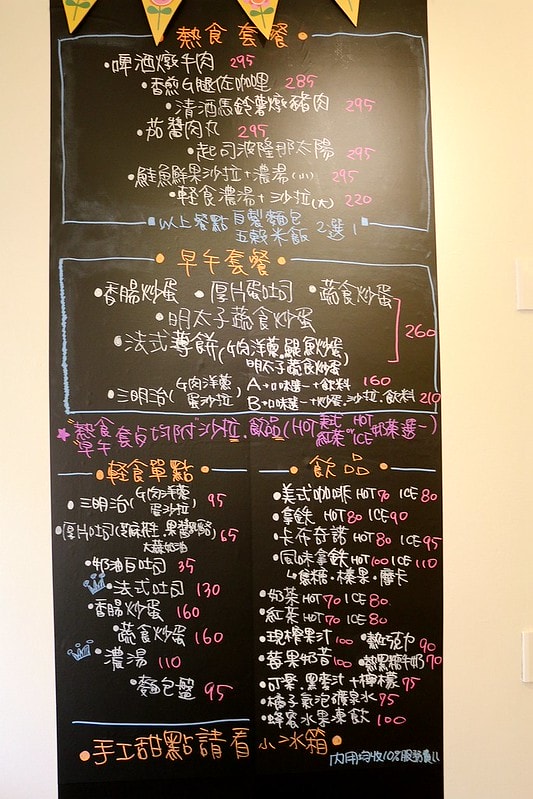 熱食套餐
啤酒燉牛肉 295
香煎G腿佐咖哩 285
清酒馬鈴薯燉豬肉 295
茄醬肉丸 295
起司波隆那太陽 295
鮭魚鮮果沙拉+濃湯(小) 295
輕食濃湯+沙拉(大) 220
以上餐點 自製麵包 五穀米飯 2選1
早午套餐
香腸炒蛋 厚片蛋吐司 蔬食炒蛋
明太子蔬食炒蛋 260
法式薄餅(G肉洋蔥.鯷魚炒蛋
明太子蔬食炒蛋)
三明治(G肉洋蔥 蛋沙拉) A→口味選一+飲料 160
B→口味選一+炒蛋.沙拉.飲料 210
熱食 早午 套餐均附沙拉.飲品(HOT美式 紅茶 HOT ICE 奶茶選一)
輕食單點
三明治(G肉洋蔥 蛋沙拉) 95
厚片吐司 65
大蒜奶油
奶油白吐司 35
法式吐司 130
香腸炒蛋 160
蔬食炒蛋 160
濃湯 110
麵包盤 95
飲品
美式咖啡 HOT 70 ICE 80
拿鐵 HOT 80 ICE 90
卡布奇諾 HOT 80 ICE 95
風味拿鐵 HOT 100 ICE 110
焦糖.榛果.摩卡
奶茶 HOT 70 ICE 80
紅茶 HOT 70 ICE 80
現榨果汁 100 熱巧克力 90
莓果奶昔 100 熱黑糖牛奶 70
可樂.黑麥汁+檸檬 75
橘子氣泡礦泉水 75
蜂蜜水果凍飲 100
手工甜點請看小冰箱
內用均收10%服務費!!